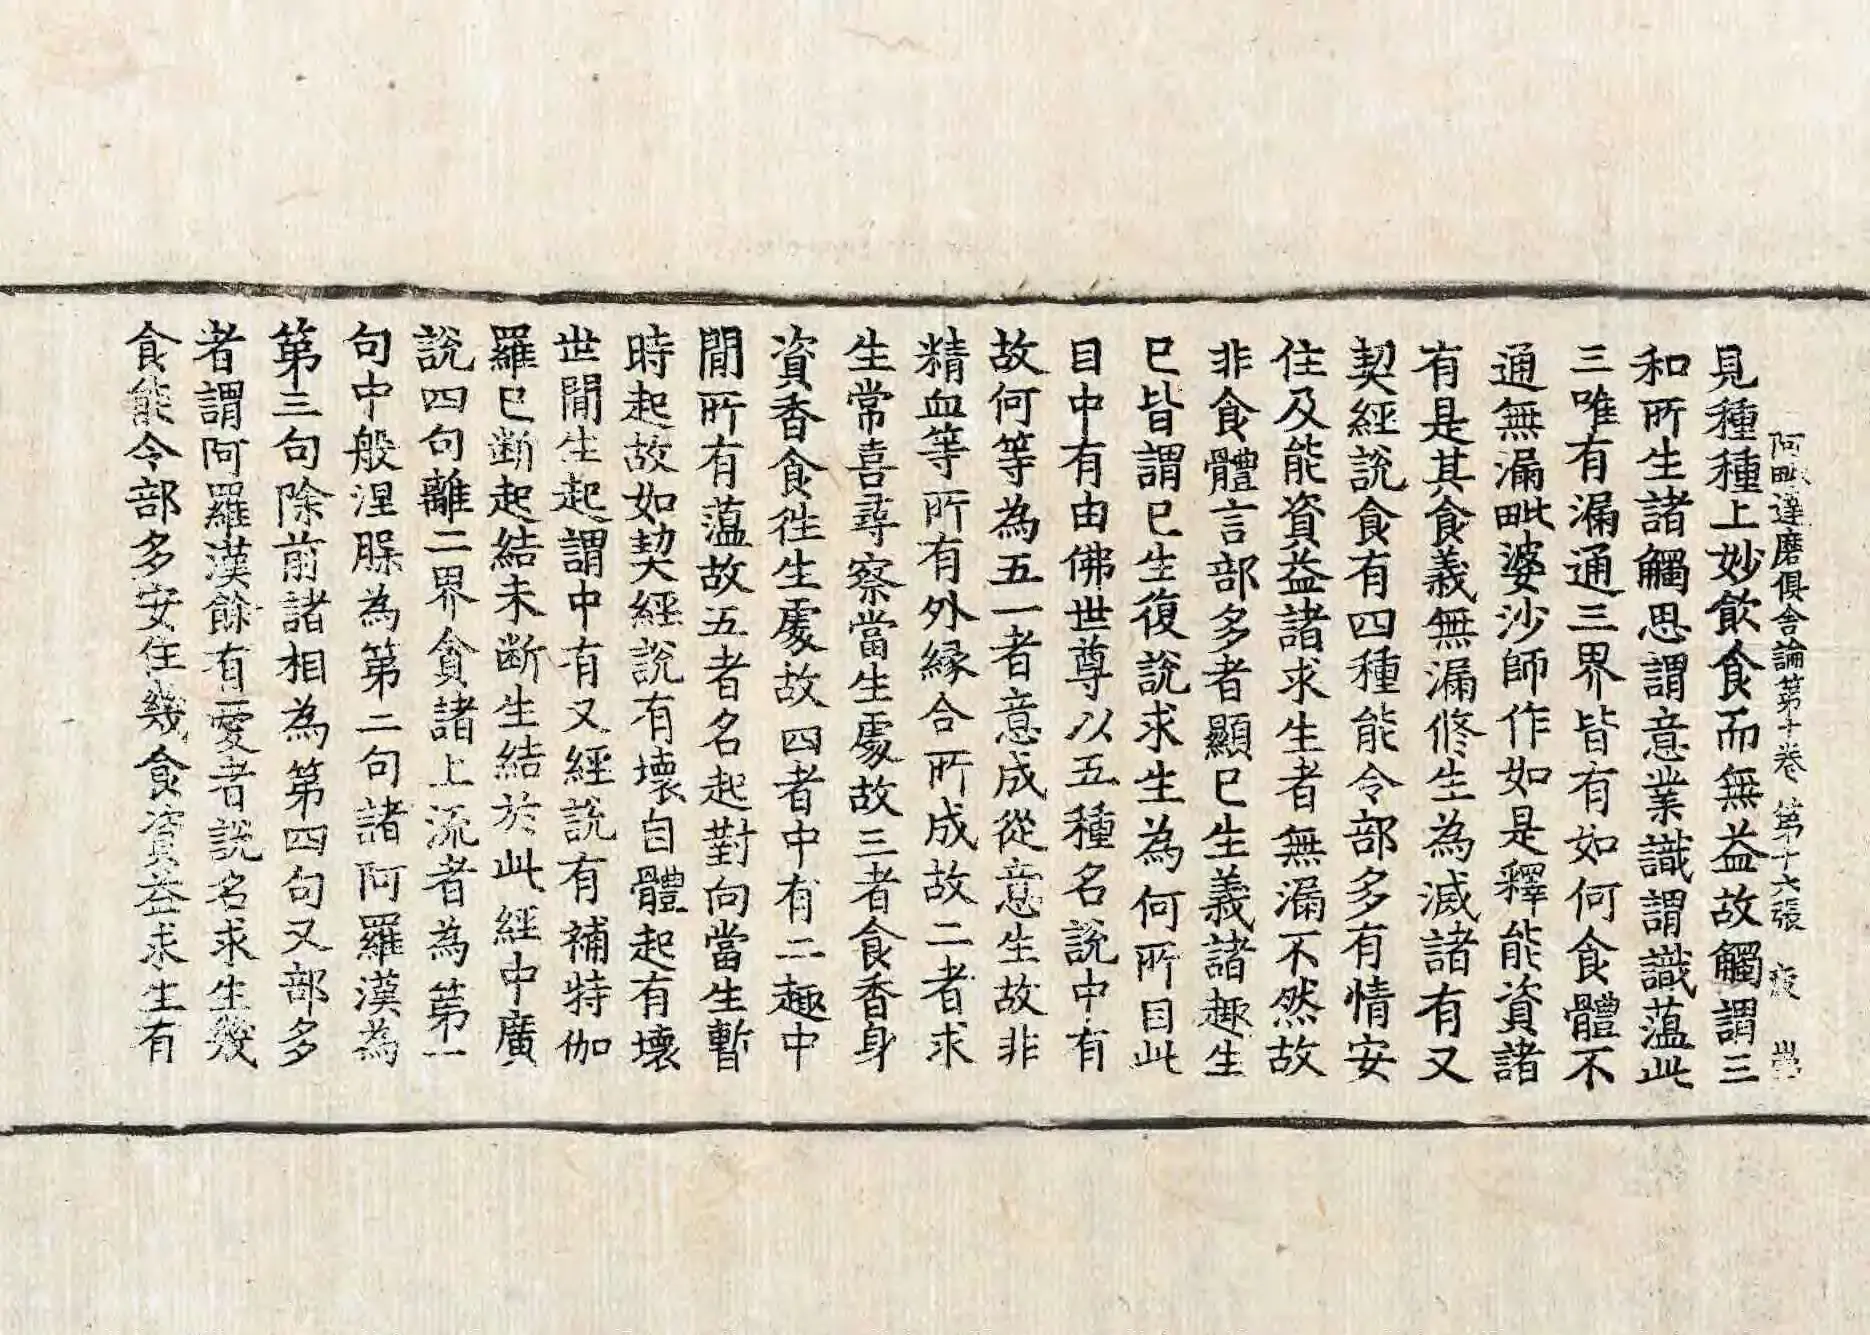 阿毗達磨俱舍論第十卷 第十六張 夜
見種種上妙飲食而無益故觸謂三
和所生諸觸思謂意業識謂識薀此
三唯有漏通三界皆有如何食體不
通無漏毗婆沙師作如是釋能資諸
有是其食義無漏修生為滅諸有又
契經說食有四種能令部多有情安
住及能資益諸求生者無漏不然故
非食體言部多者顯已生義諸趣生
已皆謂已生復說求生為何所目此
目中有由佛世尊以五種名說中有
故何等為五一者意成從意生故非
精血等所有外緣合所成故二者求
生常喜尋察當生處故三者食香身
資香食徃生處故四者中有二趣中
閒所有薀故五者名起對向當生暫
時起故如契經說有壞自體起有壞
世閒生起謂中有又經說有補特伽
羅已斷起結未斷生結於此經中廣
說四句離二界貪諸上流者為第一
句中般涅槃為第二句諸阿羅漢為
第三句除前諸相為第四句又部多
者謂阿羅漢餘有愛者說名求生幾
食能令部多安住幾食資益求生有